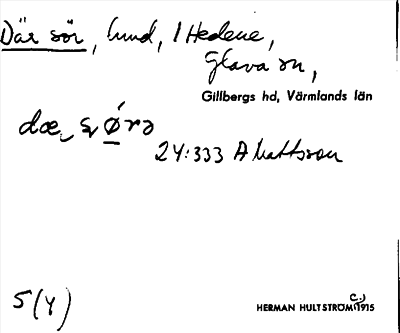 Där sör, lund, 1 Hedene,
Glava sn,
Gillbergs hd, Värmlands län
24:333 A Mattsson
5(4)
HERMAN HULTSTRÖM 1915